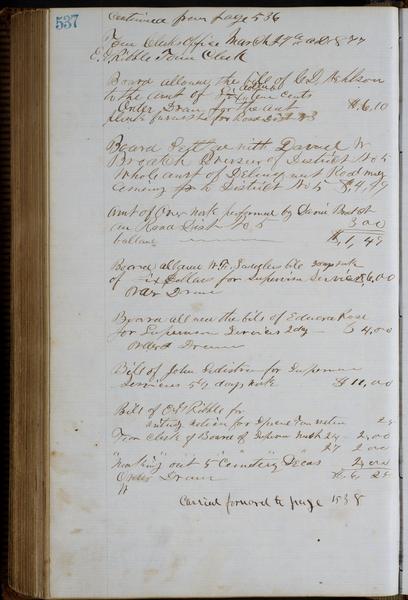 537
Continued from page 536
Town Clerks Office March 27th AD 1877
E. G. Ribble Town Clerk
Board allowed the bill of C. D.
to the amt of Six dollars ten cents
Order Drawn for the amt $6.10
plank furnished for Road Dist
Board Settle with Daniel W
Overseer of District No 5
Whole amt of Delinquent Road money
coming to District No 5 $4,49
amt of Over work performed by
on Road Dist No 5 3 00
ballance $1,49
Board allowed W. F. bill
of six Dollars for Supervisor Services $6.00
Order Drawn
Board allowed the bill of Edward Rose
for Supervisor Services 2 day 4,00
Order Drawn
Bill of John for Supervisor
Services 5½ days work $11,00
Bill of E. G. Ribble for
notice for Town 25
Town Clerk of Board of March 24 2,00
27 2 00
out 5 "Cemetery" 2 00
Order Drawn $6, 25
Carried forward to page 538